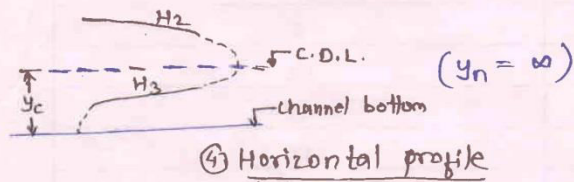 H2
C.D.L.
(yn = ∞)
H3
yc
channel bottom
④ Horizontal profile